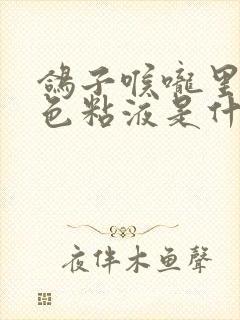 鸽子喉嚨里
色粘液是什
夜伴木鱼聲